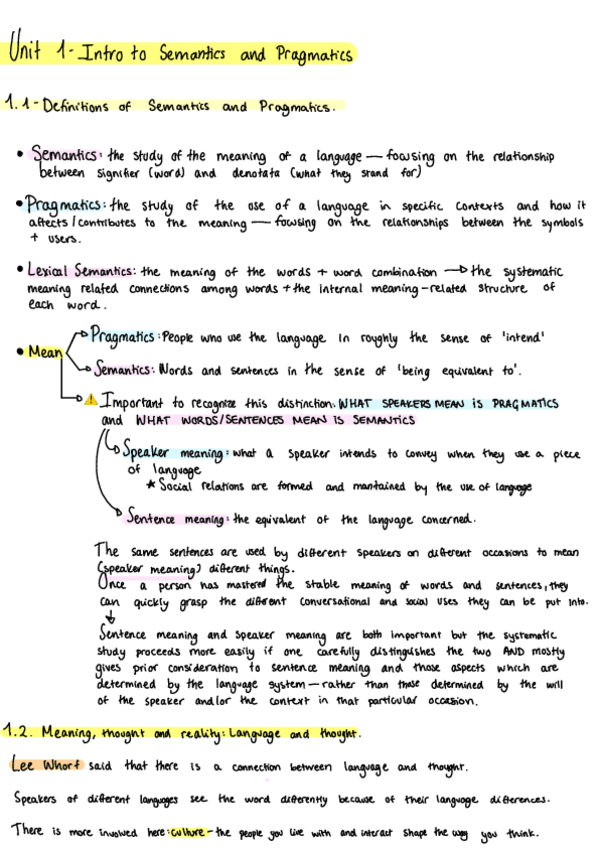 Unit 1 - Intro to Semantics and Pragmatics
1.1 - Definitions of Semantics and Pragmatics.
• Semantics: the study of the meaning of a language — focusing on the relationship
between signifier (word) and denotata (what they stand for)
• Pragmatics: the study of the use of a language in specific contexts and how it
affects / contributes to the meaning — focusing on the relationships between the symbols
+ users.
• Lexical Semantics: the meaning of the words + word combination → the systematic
meaning related connections among words + the internal meaning-related structure of
each word.
Pragmatics: People who use the language in roughly the sense of 'intend'
• Mean
Semantics: Words and sentences in the sense of 'being equivalent to'.
⚠ Important to recognize this distinction: WHAT SPEAKERS MEAN IS PRAGMATICS
and WHAT WORDS/SENTENCES MEAN IS SEMANTICS
Speaker meaning: what a speaker intends to convey when they use a piece
of language
★ Social relations are formed and mantained by the use of language
Sentence meaning: the equivalent of the language concerned.
The same sentences are used by different speakers on different occasions to mean
(speaker meaning) different things.
Once a person has mastered the stable meaning of words and sentences, they
can quickly grasp the different conversational and social uses they can be put into.
↓
Sentence meaning and speaker meaning are both important but the systematic
study proceeds more easily if one carefully distinguishes the two AND mostly
gives prior consideration to sentence meaning and those aspects which are
determined by the language system — rather than those determined by the will
of the speaker and/or the context in that particular occasion.
1.2. Meaning, thought and reality: Language and thought.
Lee Whorf said that there is a connection between language and thought.
Speakers of different languages see the word differently because of their language differences.
There is more involved here: culture - the people you live with and interact shape the way you think.